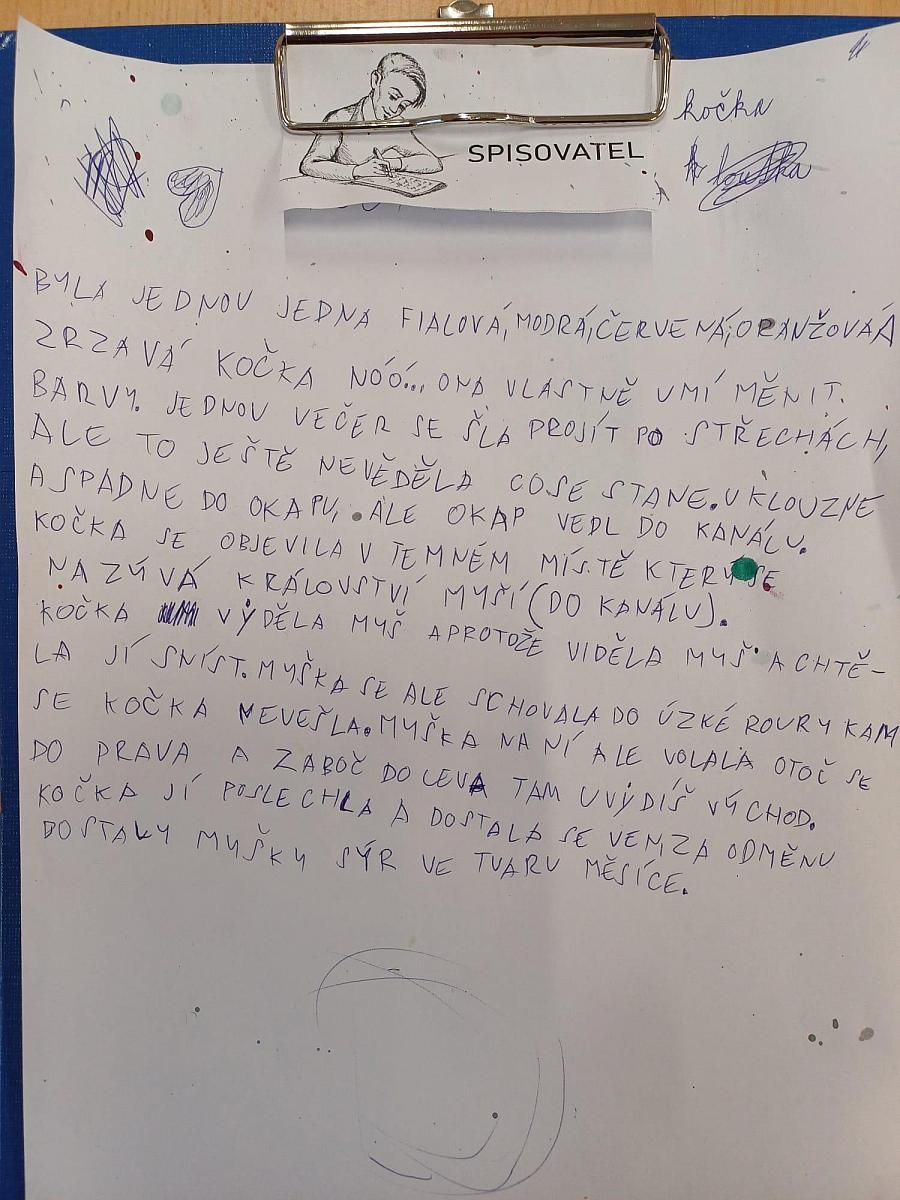 kočka
SPISOVATEL
BYLA JEDNOU JEDNA FIALOVÁ, MODRÁ, ČERVENÁ, ORANŽOVÁ A
ZRZAVÁ KOČKA NÓÓ... ONA VLASTNĚ UMÍ MĚNIT.
BARVY. JEDNOU VEČER SE ŠLA PROJÍT PO STŘECHÁCH,
ALE TO JEŠTĚ NEVĚDĚLA COSE STANE. UKLOUZNE
A SPADNE DO OKAPU, ALE OKAP VEDL DO KANÁLU.
KOČKA SE OBJEVILA V TEMNÉM MÍSTĚ KTERÝ SE
NAZÝVÁ KRÁLOVSTVÍ MYŠÍ (DO KANÁLU).
KOČKA VÝDĚLA MYŠ APROTOŽE VIDĚLA MYŠ A CHTĚ-
LA JÍ SNÍST. MYŠKA SE ALE SCHOVALA DO ÚZKÉ ROURY KAM
SE KOČKA NEVEŠLA. MYŠKA NA NÍ ALE VOLALA OTOČ SE
DO PRAVA A ZABOČ DO LEVA TAM UVÝDÍŠ VÝCHOD.
KOČKA JÍ POSLECHLA A DOSTALA SE VEN, ZA ODMĚNU
DOSTALY MYŠKY SÝR VE TVARU MĚSÍCE.